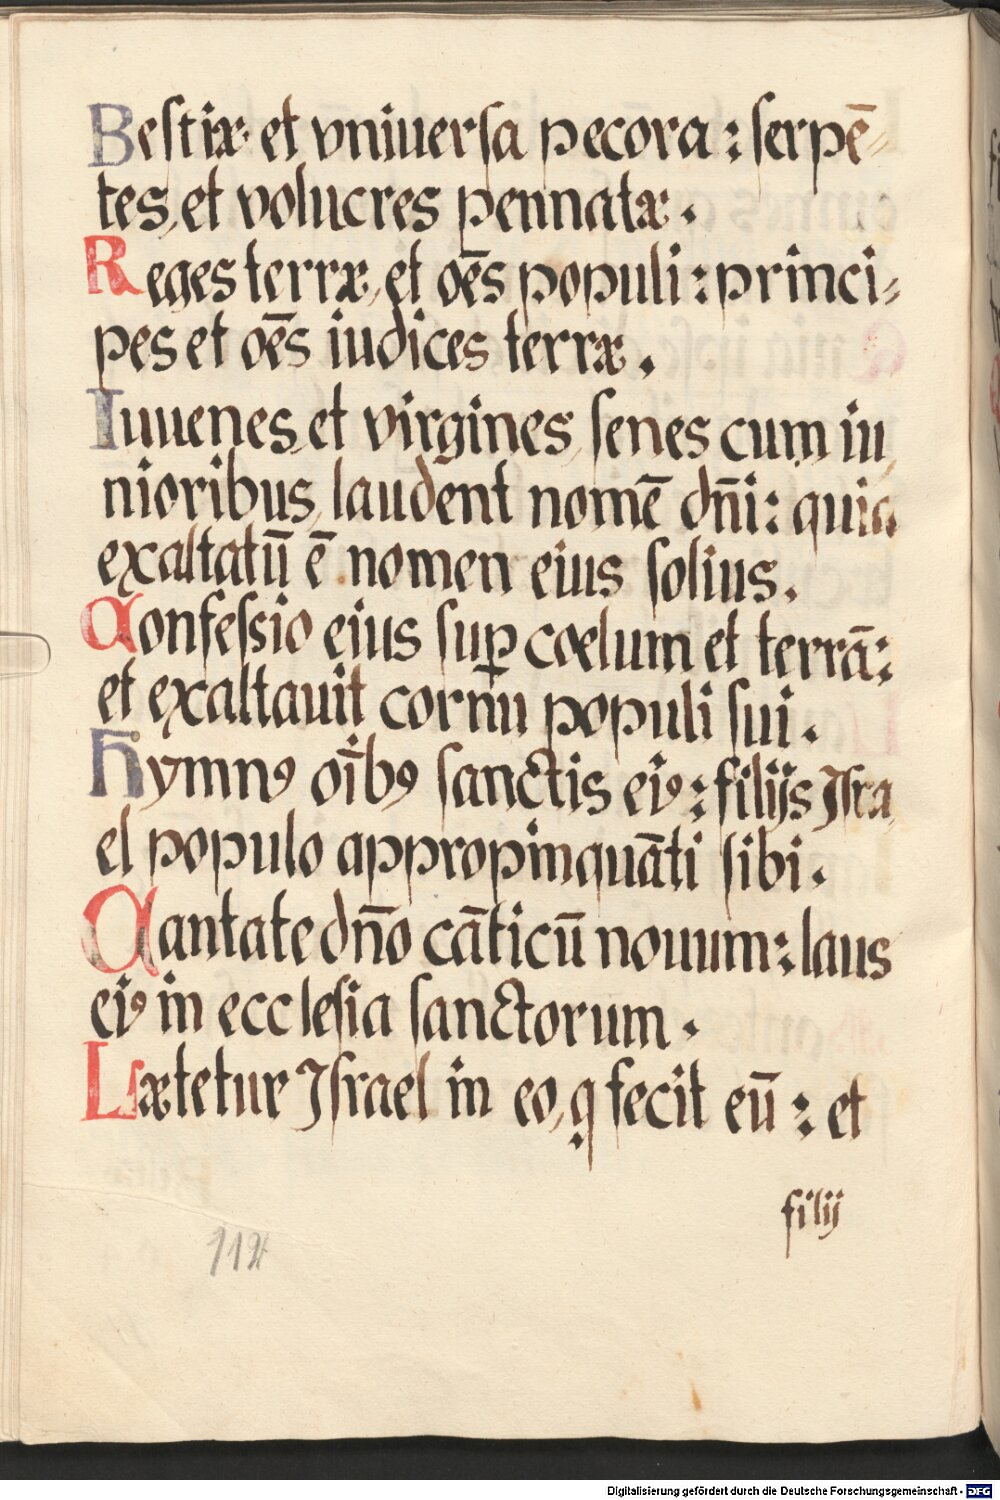 Bestiæ et vniuersa pecora: serpē-
tes, et volucres pennatæ.
Reges terræ, et oēs populi: princi-
pes et oēs iudices terræ.
Iuuenes, et virgines, senes cum iu,
nioribus, laudent nomē dn̄i: quia
exaltatū ē nomen eius solius.
Confessio eius suꝑ cœlum et terrā:
et exaltauit cornu populi sui.
Hymnꝰ oībꝰ sanctis eiꝰ: filijs Isra,
el populo appropinquāti sibi.
Cantate dn̄o cāticū nouum: laus
eiꝰ in ecclesia sanctorum.
Lætetur Israel in eo, q fecit eū: et
filij
Digitalisierung gefördert durch die Deutsche Forschungsgemeinschaft - DFG